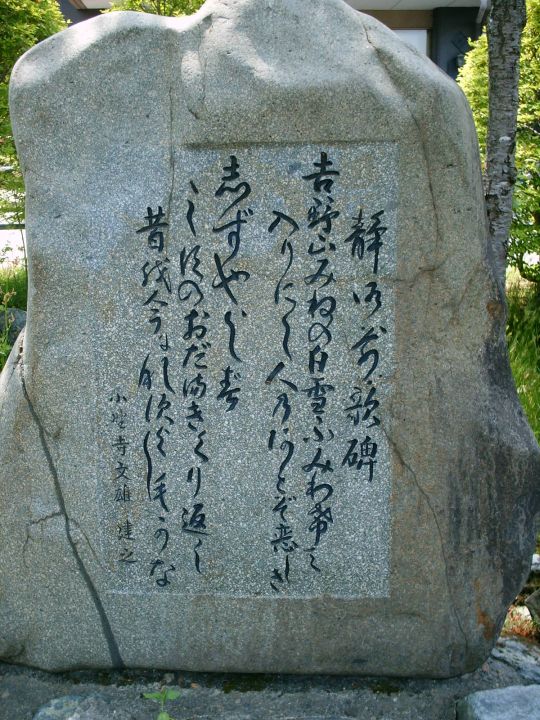 静御前歌碑
吉野山みねの白雪ふみわけて
入りにし人のあとぞ恋しき
志ずやしず
しずのおだまきくり返し
昔を今になすよしもかな
小 寺文雄 建之